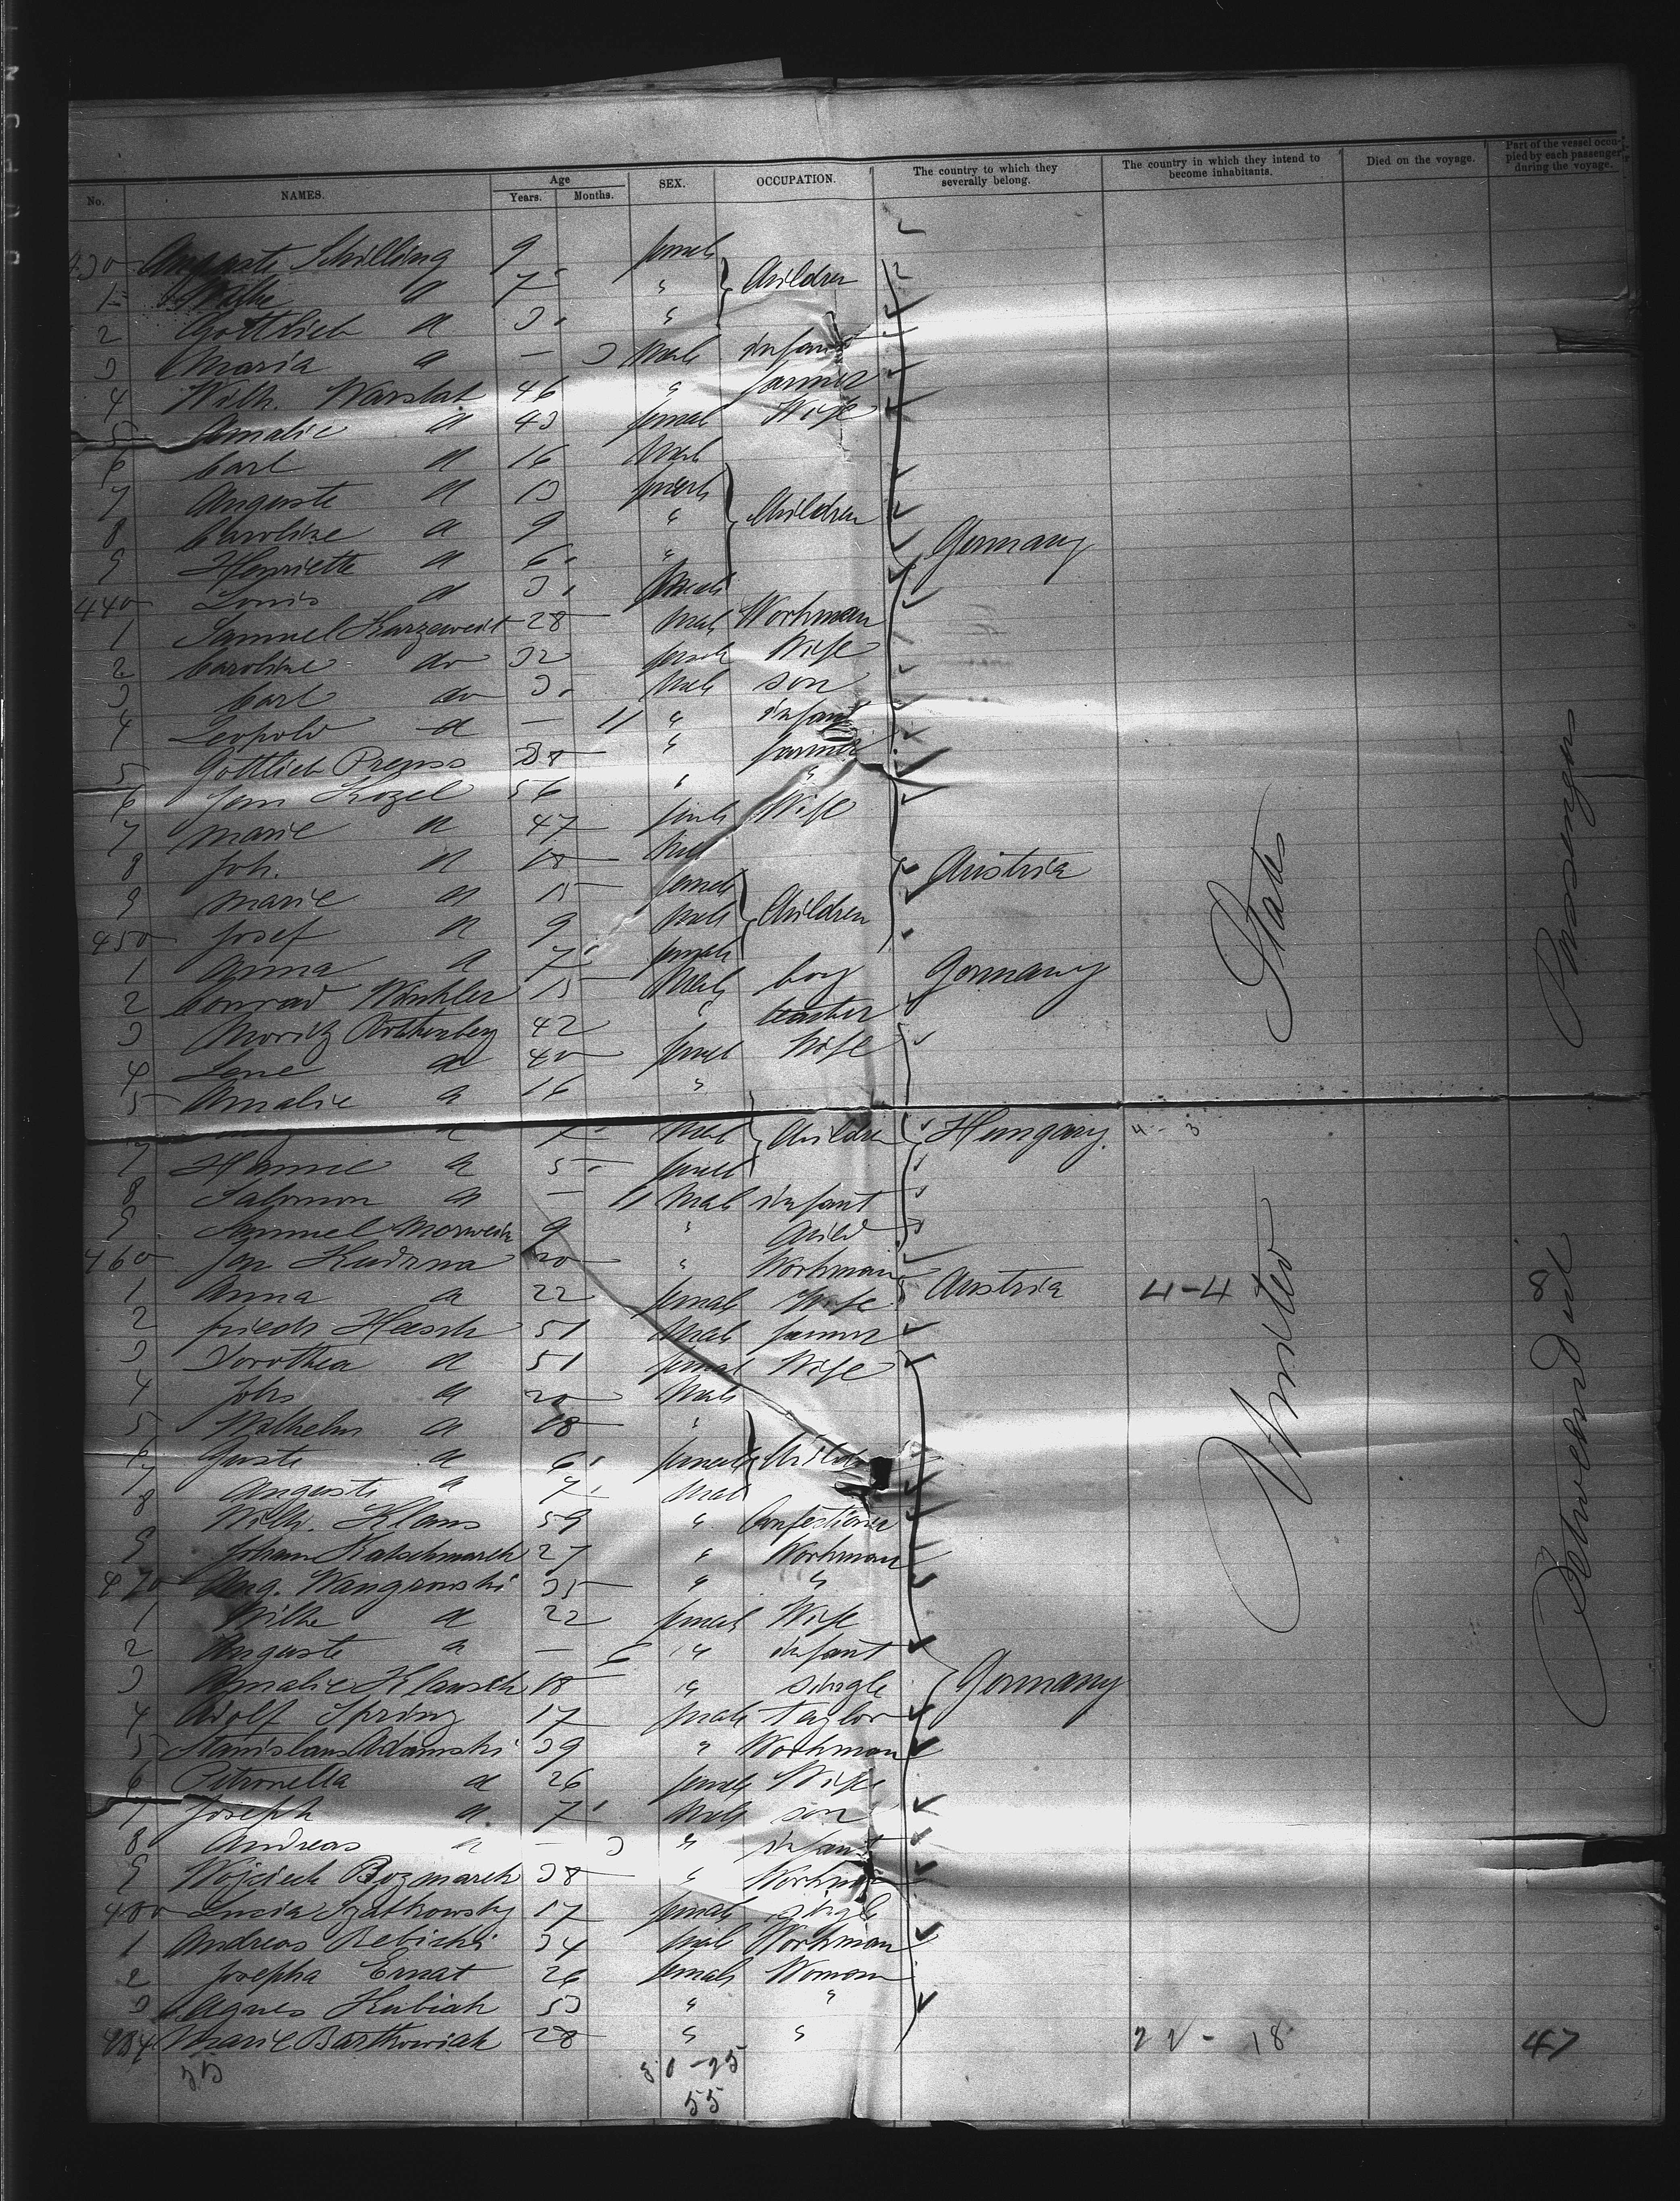 No. NAMES. Age Years. Months. SEX. OCCUPATION. The country to which they severally belong. The country in which they intend to become inhabitants. Died on the voyage. Part of the vessel occupied by each passenger during the voyage.
430 Auguste Schilling 9 female
1 Wilhe d 7 " Children
2 Gottlieb d 3 "
3 Maria d — 3 Male infant
4 Wilh. Warslat 46 " farmer
5 Amalie d 43 female Wife
6 Carl d 16 Male
7 Auguste d 13 female
8 Caroline d 9 " Children
9 Henriette d 6 " Germany
440 Louis d 3 Male
1 Samuel 28 Male Workman
2 Caroline do 32 female Wife
3 Carl do 3 Male son
4 Leopold d — 11 " infant
5 Gottlieb Preuss " farmer
6 Jan Kozel 56 " "
7 Marie d 47 female Wife
8 Joh. d 18 Male
9 Marie d 15 female Austria
450 Josef d 9 Male Children
1 Anna d 7 female
2 Conrad Winkler 15 Male boy Germany
3 Moritz 42 "
4 Lene d 40 female Wife
5 Amalie d 16 "
d 7 Male Children Hungary 4 - 3
7 Hanne d 5 female
8 Salomon d — 11 Male infant
9 Samuel 9 " Child
460 Jan Kudrna 20 " Workman
1 Anna d 22 female Wife Austria 4-4
2 Friedr Heesch 51 Male farmer
3 Dorothea d 51 female Wife
4 Johs d 20 Male
5 Wilhelm d 18 "
6 Guste d 6 female Children
7 Auguste d 7 Male
8 Wilh. Klaus 59 "
9 Johann Katschmarek 27 " Workman
470 Aug. Wangrowski 35 " "
1 Wilhe d 22 female Wife
2 Auguste d — 6 " infant
3 Amalie 18 " single Germany
4 Adolf Spring 17 Male Taylor
5 Stanislaus Adamski 39 " Workman
6 Petronella d 26 female Wife
7 Joseph d 7 Male son
8 Andreas d — 3 " infant
9 Wojciech 38 " Workman
480 Lucia 17 female single
1 Andreas Rebicki 34 Male Workman
2 Josepha Ernat 26 female Woman
3 Agnes Kubiak 53 " "
484 Marie Bartkowiak 28 " " 22 - 18 47
55 30 - 25
55
United States
Between d Passengers
8